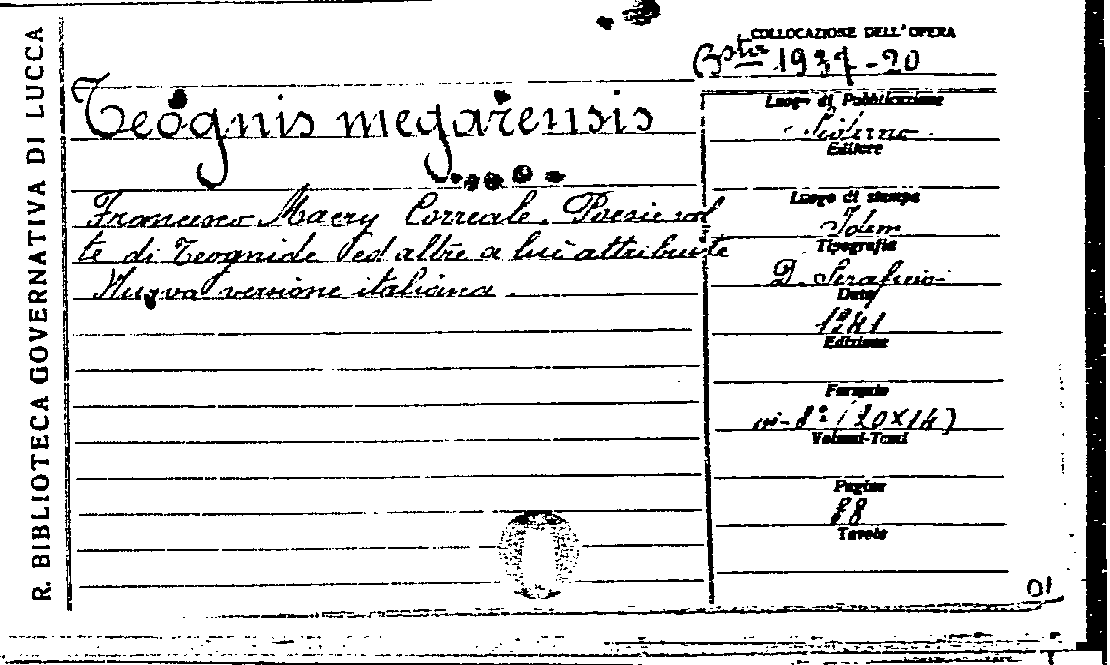 R. BIBLIOTECA GOVERNATIVA DI LUCCA
COLLOCAZIONE DELL'OPERA
Bsta 1937-20
Teognis megarensis
Francesco Macry Correale. Poesie scel
te di Teognide ed altre a lui attribuite
Nuova versione italiana.
Luogo di Pubblicazione
Siderno
Editore
Luogo di stampa
Idem
Tipografia
D. Serafino
Data
1881
Edizione
Formato
in-8° (20x14)
Volumi-Tomi
Pagine
88
Tavole
01